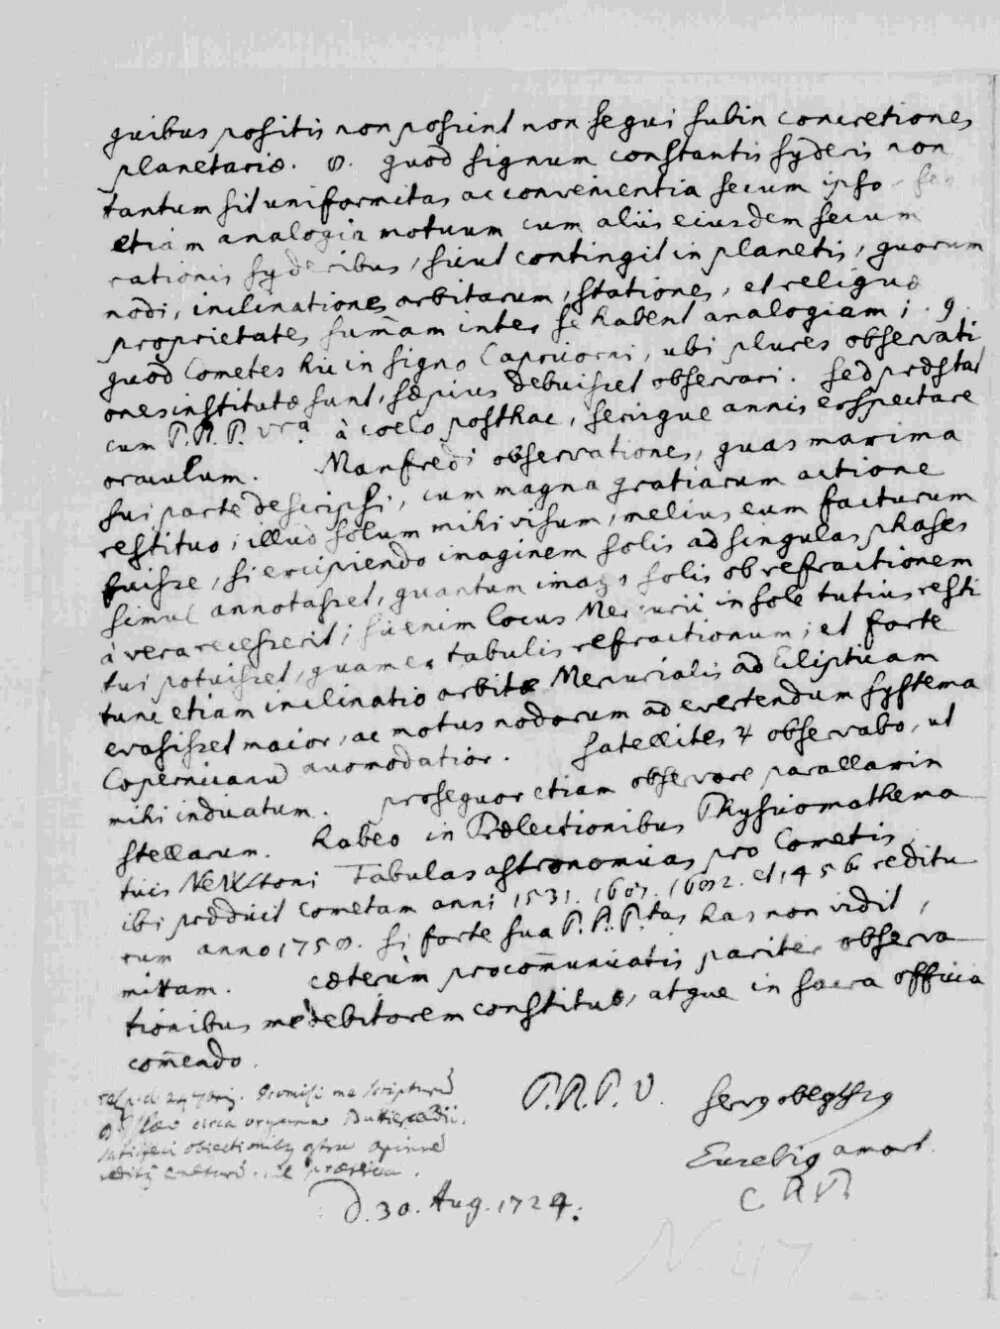 quibus positis non possint non sequi subin concretiones
planetariæ. 8. quod signum constantis syderis non
tantum sit uniformitas ac convenientia secum ipso sed
etiam analogia motuum cum aliis eiusdem secum
rationis syderibus, sicut contingit in planetis, quorum
nodi, inclinationes orbitarum, stationes, et reliquæ
proprietates sum̄am inter se habent analogiam; 9.
quod Cometes hic in signo Capricorni, ubi plures observati
ones institutæ sunt, sæpius debuisset observari. Sed præstat
cum P.R.P. vrâ à coelo posthac, serisque annis exspectare
oraculum. Manfredi observationes, quas maxima
sui parte descripsi, cum magna gratiarum actione
restituo; illud solum mihi visum, melius eum facturum
fuisse, si excipiendo imaginem solis ad singulas phases
simul annotasset, quantum imago solis ob refractionem
à vera recesserit; sic enim locus Mercurii in sole tutius resti
tui potuisset, quam ex tabulis refractionum; et forte
tunc etiam inclinatio orbitæ Mercurialis ad Eclipticam
evasisset maior, ac motus nodorum ad evertendum systema
Copernicanū accomodatior. Satellites ♃ observabo, ut
mihi indicatum. prosequor etiam observare parallaxin
stellarum. habeo in Prælectionibus Physicomathema
ticis Newtoni Tabulas astronomicas pro Cometis
ibi prædicit cometam anni 1531. 1607. 1682. et 1456 reditu
rum anno 1758. si forte sua P.R.P.tas has non vidit,
mittam. cæterùm pro com̄unicatis pariter observa
tionibus me debitorem constituo, atque in sacra officia
com̄endo.
P.R.P.V. servq obligtssq
Eusebiq amort.
C R P
D. 30. Aug. 1724.
N. 47